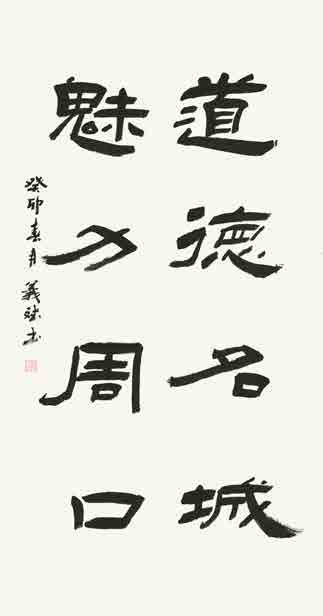 道德名城
魅力周口
癸卯春月義斌书